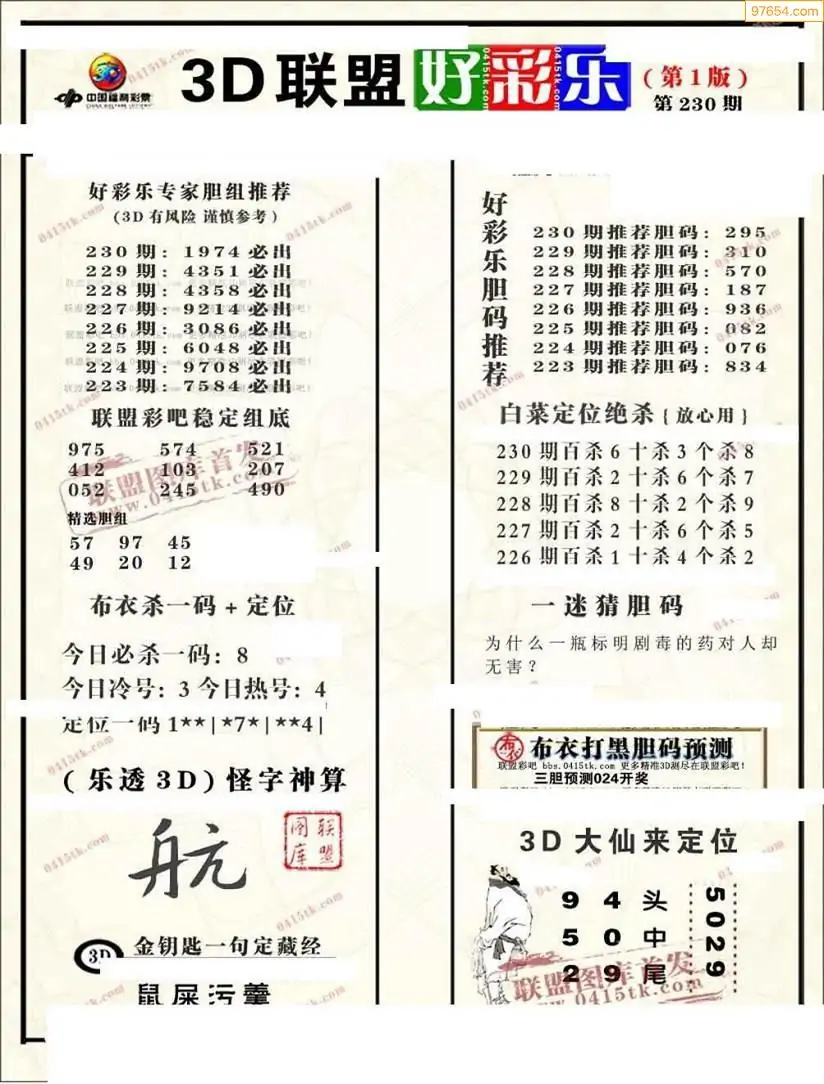 97654.com
中国福利彩票
CHINA WELFARE LOTTERY
3D联盟好彩乐
(第1版)
第230期
好彩乐专家胆组推荐
(3D有风险 谨慎参考)
230期: 1974必出
229期: 4351必出
228期: 4358必出
227期: 9214必出
226期: 3086必出
225期: 6048必出
224期: 9708必出
223期: 7584必出
联盟彩吧稳定组底
975 574 521
412 103 207
052 245 490
精选胆组
57 97 45
49 20 12
布衣杀一码+定位
今日必杀一码: 8
今日冷号: 3 今日热号: 4
定位一码 1**|*7*|**4|
(乐透3D)怪字神算
航
联盟图库
3D
金钥匙一句定藏经
鼠屎污羹
好彩乐胆码推荐
230期推荐胆码: 295
229期推荐胆码: 310
228期推荐胆码: 570
227期推荐胆码: 187
226期推荐胆码: 936
225期推荐胆码: 082
224期推荐胆码: 076
223期推荐胆码: 834
白菜定位绝杀{放心用}
230期百杀6十杀3个杀8
229期百杀2十杀6个杀7
228期百杀8十杀2个杀9
227期百杀2十杀6个杀5
226期百杀1十杀4个杀2
一迷猜胆码
为什么一瓶标明剧毒的药对人却
无害?
布衣
布衣打黑胆码预测
联盟彩吧 bbs.0415tk.com 更多精准3D测尽在联盟彩吧!
三胆预测024开奖
3D大仙来定位
9 4 头
5 0 中
2 9 尾
5029
联盟图库首发
www.0415tk.com
联盟图库首发
www.0415tk.com
0415tk.com